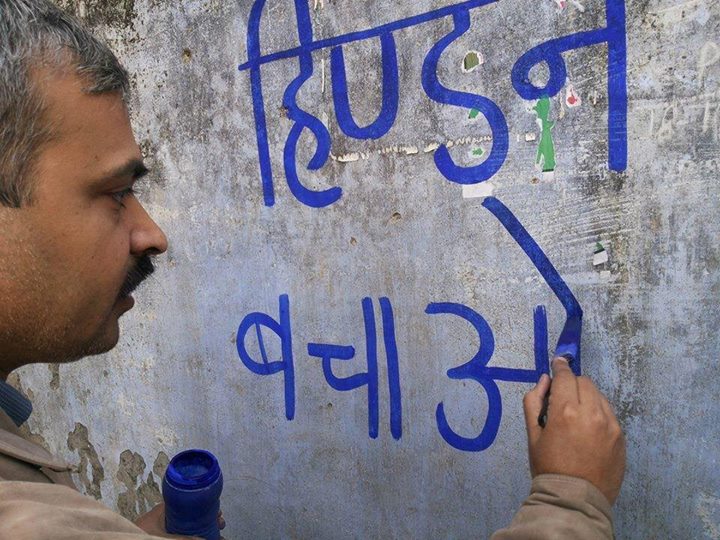 हिण्डन
बचाओ